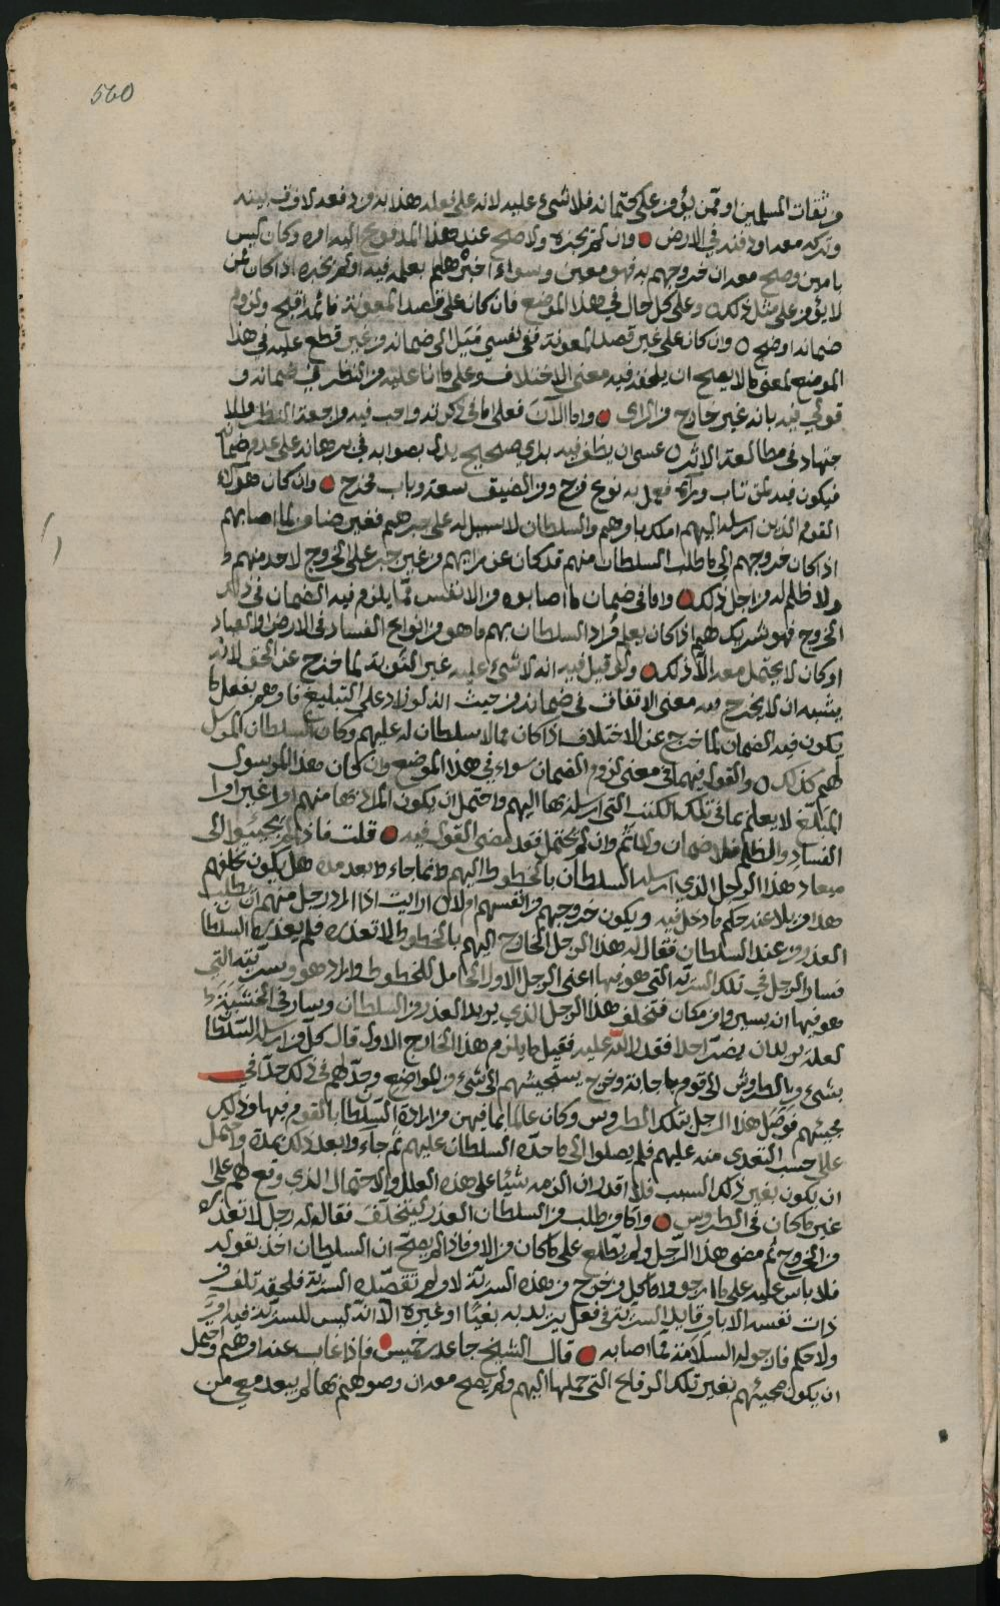 560
من ثقات المسلمين او ممن يؤمن على كتمانه فلا شيء عليه لانه على قوله هذا به ودفعه لا فرق بينه
وتركه معه او دفنه في الارض وان لم يخبره ولا صح عنده هذا المدفوع اليه امره وكان ليس
بامين وصح معه ان خروجهم به فهو معين وسواء اخبرهم بعلمه فيه او لم يخبره اذا كان ممن
لا يؤمن على مثل ذلك وعلى كل حال في هذا الموضع فان كان على قصد المعونة فاثمه اقبح ولزوم
ضمانه اوضح وان كان على غير قصد المعونة ففي نفسي ميل الى ضمانه من غير قطع عليه في هذا
الموضع لمعنى ما لا يصلح ان يلحقه فيه معنى الاختلاف وعلى ما انا عليه من النظر في ضمانه و
قولي فيه بانه غير خارج من الراي واما الآن فعلى ما في ذكرته واجب فيه مراجعة النظر والا
جتهاد في مطالعة الاثر عسى ان يظفر فيه براي صحيح يدل بصوابه في برهانه على عدم ضمانه
فيكون فيه لمن تاب ورآه فعمل به نوع فرح ومن الضيق سعة وباب مخرج وان كان هؤلاء
القوم الذين ارسله اليهم املك بامرهم والسلطان لا سبيل له على جبرهم فغير ضامن لما اصابهم
اذا كان خروجهم الى ما طلب السلطان منهم قد كان عن رايهم من غير جبر على الخروج لاحد منهم
ولا ظلم له من اجل ذلك واما في ضمان ما اصابوه من الانفس مما يلزم فيه الضمان في ذلك
الخروج فهو شريك لهم اذا كان بعلم مراد السلطان بهم ما هو من انواع الفساد في الارض او العباد
او كان لا يحتمل معه الا ذلك ولو قيل فيه انه لا شيء عليه غير التوبة لما خرج عن الحق لانه
يشبه ان لا يخرج فيه معنى الاتفاق في ضمانه من حيث انه لو زاد على التبليغ فامرهم بفعل ما
يكون فيه الضمان لما خرج عن الاختلاف اذا كان مما لا سلطان له عليهم وكان السلطان المرسل
لهم كذلك والقول فيهما في معنى لزوم الضمان سواء في هذا الموضع وان كان هذا الرسول
المبلغ لا يعلم بما في تلك الكتب التي ارسله بها اليهم واحتمل ان يكون المراد بها منهم او لا غير اوا
الفساد والظلم فلا ضمان ولا اثم وان لم يحتمل فقد مضى القول فيه قلت فاذا لم يجيئوا الى
ميعاد هذا الرجل الذي ارسله السلطان بالخطوط اليهم وانما جاءوا بعد مدة هل يكون تخلفهم
هذا مزيلا عنه حكم ما دخل فيه ويكون خروجهم من انفسهم ام لا ارايت اذا اراد رجل منهم ان يطلب
العذر من عند السلطان فقال له هذا الرجل الخارج اليهم بالخطوط لا تعذره فلم يعذره السلطان
فسار الرجل في تلك السرية التي هو فيها اعني الرجل الاول الحامل للخطوط واراد هو وسريته التي
هو فيها ان يسير من مكان فتخلف هذا الرجل الذي يريد العذر من السلطان وسار في
لعله يريد ان يضر احدا فقدر الله عليه فقتل ما يلزم هذا الخارج الاول قال كل من ارسله السلطان
بشيء من الطروس الى قوم بها جاءته وخرج يستحيشهم الى شيء من المواضع وحد لهم في ذلك حدا في
مجيئهم فوصل هذا الرجل بتلك الطروس وكان عالما بما فيهن من ارادة السلطان بالقوم فيها وذلك
على حسب التعدي منه عليهم فلم يصلوا الى ما حده السلطان عليهم ثم جاءوا بعد ذلك بمدة واحتمل
ان يكون بغير ذلك السبب فلا اقدر ان الزمه شيئا على هذه العلل والاحتمال الذي وقع لهم على
غير ما كان في الطروس واما من طلب من السلطان العذر ليتخلف فقال له رجل لا تعذره
من الخروج ثم مضى هذا الرجل ولم يطلع على ما كان من الامر فاذا لم يصح ان السلطان اخذ بقوله
فلا باس عليه على ما ارجو وما كل من خرج من هذه السرية لامر لم تقصده السرية فلحقه تلف في
ذات نفسه الا بامر قايد السرية في فعل يريد به بغيا او غيره الا انه ليس للسرية فيه امر
ولا حكم فارجو له السلامة مما اصابه قال الشيخ جاعد بن خميس فاذا غاب عنه امرهم واحتمل
ان يكون مجيئهم بغير تلك الرقاع التي حملها اليهم ولم يصح معه ان وصولهم بها لم يبعد معي من